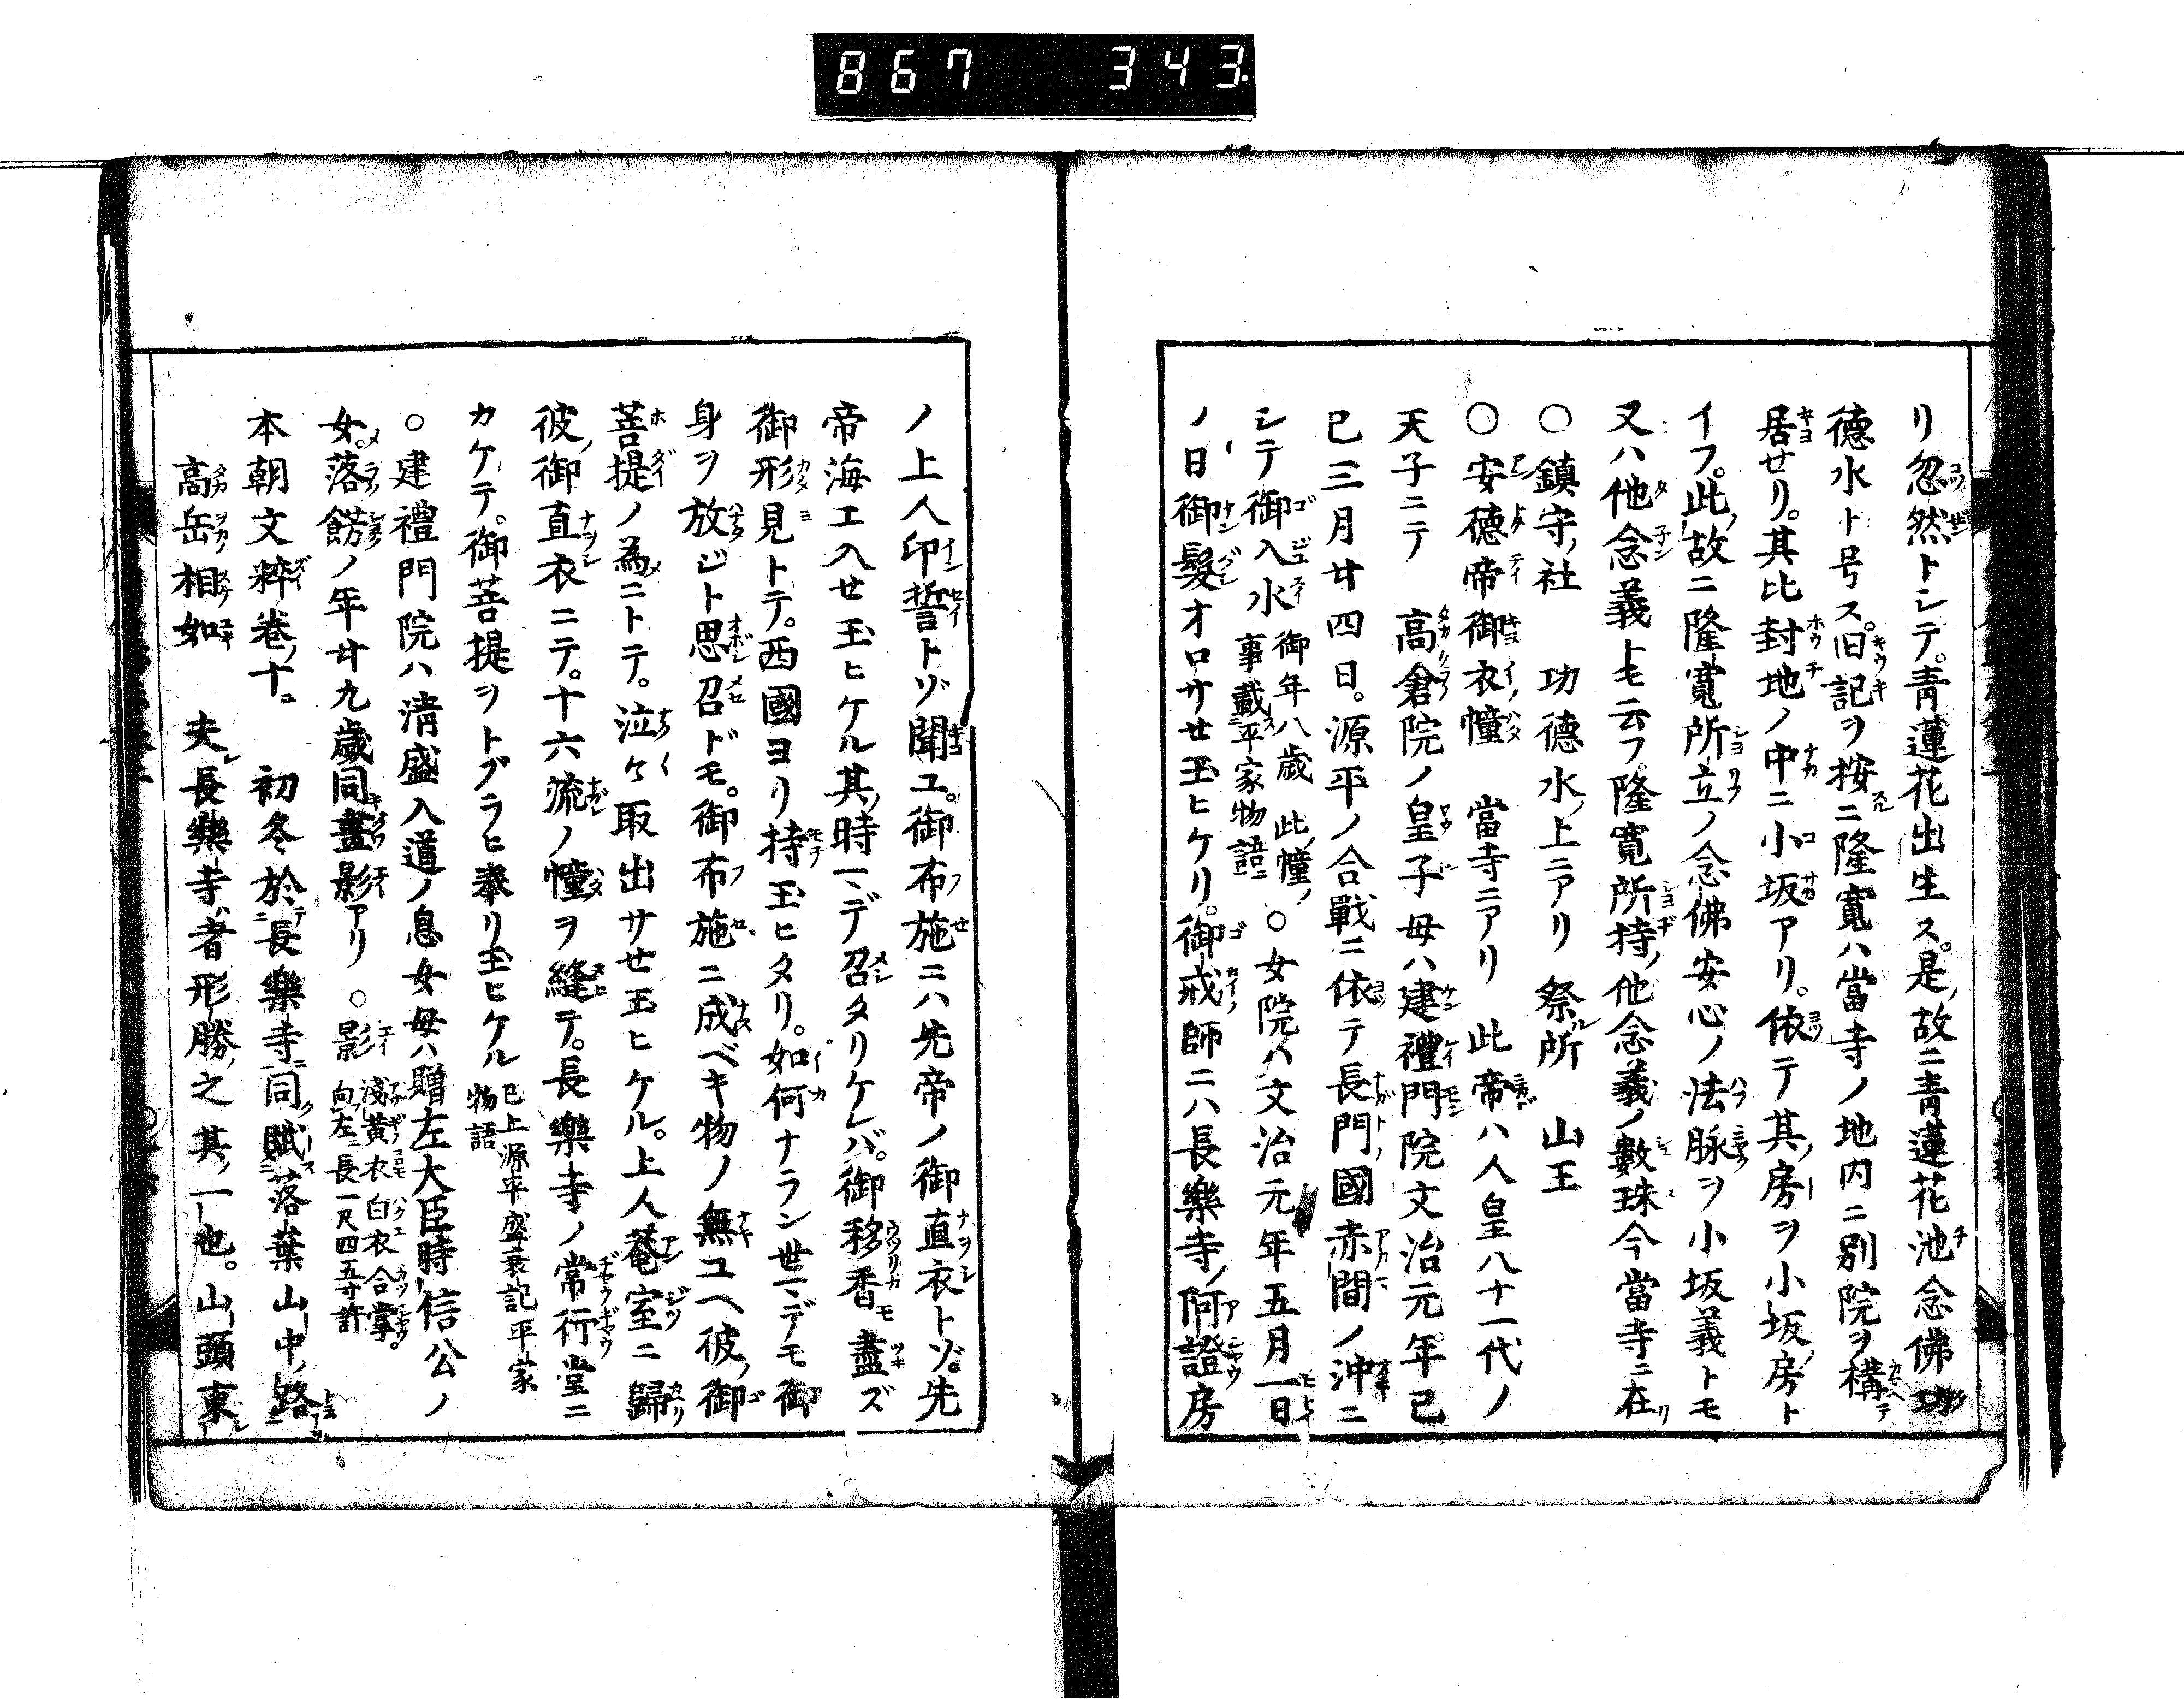 867 343
リ忽然トシテ。青蓮花出生ス。是ノ故ニ青蓮花池念佛功
德水ト号ス。旧記ヲ按ニ隆寬ハ當寺ノ地内ニ別院ヲ構テ
居せリ。其比封地ノ中ニ小坂アリ。依テ其ノ房ヲ小坂ノ房ト
イフ。此ノ故ニ隆寬所立ノ念佛安心ノ法脉ヲ小坂義トモ
又ハ他念義トモ云フ。隆寬所持ノ他念義ノ數珠今當寺ニ在リ
○鎮守ノ社 功德水ノ上ニアリ 祭ル所 山王
○安德帝御衣幢 當寺ニアリ 此帝ハ人皇八十一代ノ
天子ニテ 高倉院ノ皇子母ハ建禮門院文治元年己
巳三月廿四日。源平ノ合戰ニ依テ長門ノ國赤間ノ沖ニ
シテ御入水 御年八歲 此ノ幢ノ事載平家物語ニ ○女院ハ文治元年五月一日
ノ日御髮オロサせ玉ヒケリ。御戒ノ師ニハ長樂寺ノ阿證房
ノ上人印誓トゾ聞ユ。御布施ニハ先帝ノ御直衣トゾ。先
帝海エ入せ玉ヒケル其ノ時マデ召タリケレバ。御移香モ盡ズ
御形見トテ。西國ヨリ持玉ヒタリ。如何ナラン世マデモ御
身ヲ放ジト思召ドモ。御布施ニ成ベキ物ノ無ユヘ彼ノ御
菩提ノ為ニトテ。泣々取出サせ玉ヒケル。上人菴室ニ歸リ
彼ノ御直衣ニテ。十六流ノ幢ヲ縫テ。長樂寺ノ常行堂ニ
カケテ。御菩提ヲトブラヒ奉リ玉ヒケル 已上源平盛衰記平家物語
○建禮門院ハ清盛入道ノ息女母ハ贈左大臣時信公ノ
女。落餝ノ年廿九歲同畫影アリ ○影 淺黃衣白衣合掌。向左ニ長一尺四五寸許
本朝文粹卷ノ十ニ 初冬於長樂寺同賦落葉山中路
高岳相如 夫長樂寺者形勝之其一也。山頭東